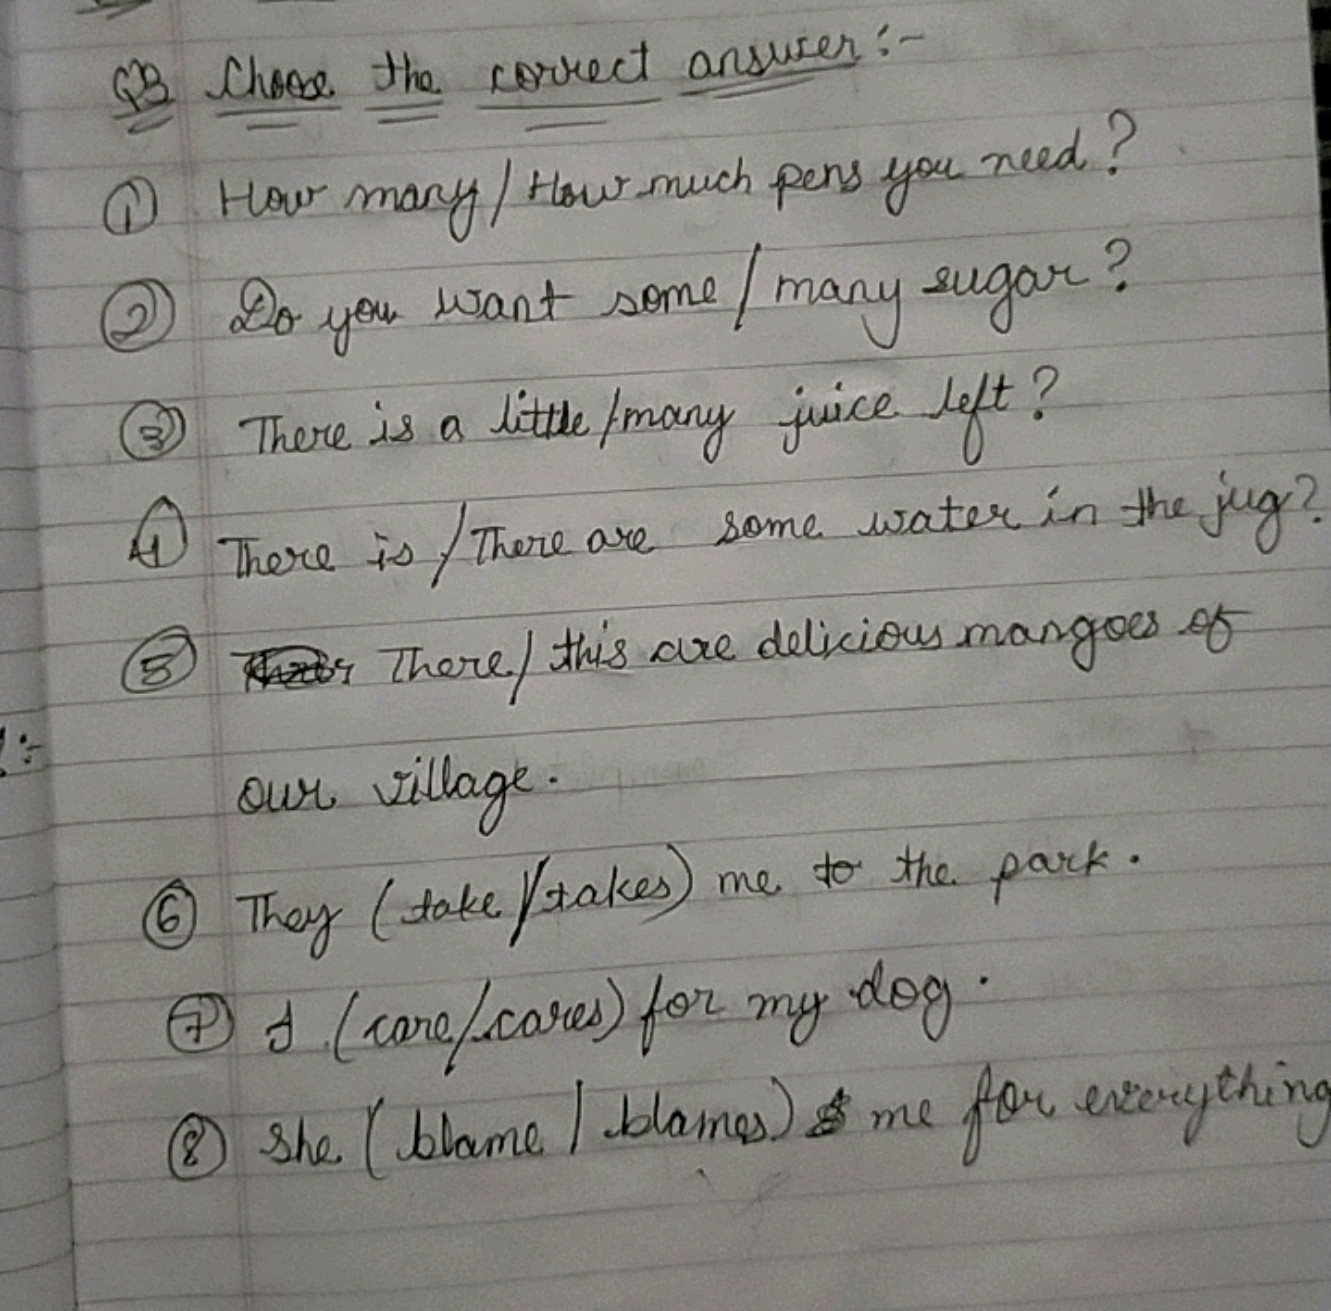 Q3 Choose the correct answer :-
① How many / How much pens you need ?
② Do you want some / many sugar ?
③ There is a little / many juice left ?
④ There is / There are some water in the jug ?
⑤ There / this are delicious mangoes of
our village.
⑥ They (take / takes) me to the park.
⑦ I (care / cares) for my dog.
⑧ She (blame / blames) me for everything